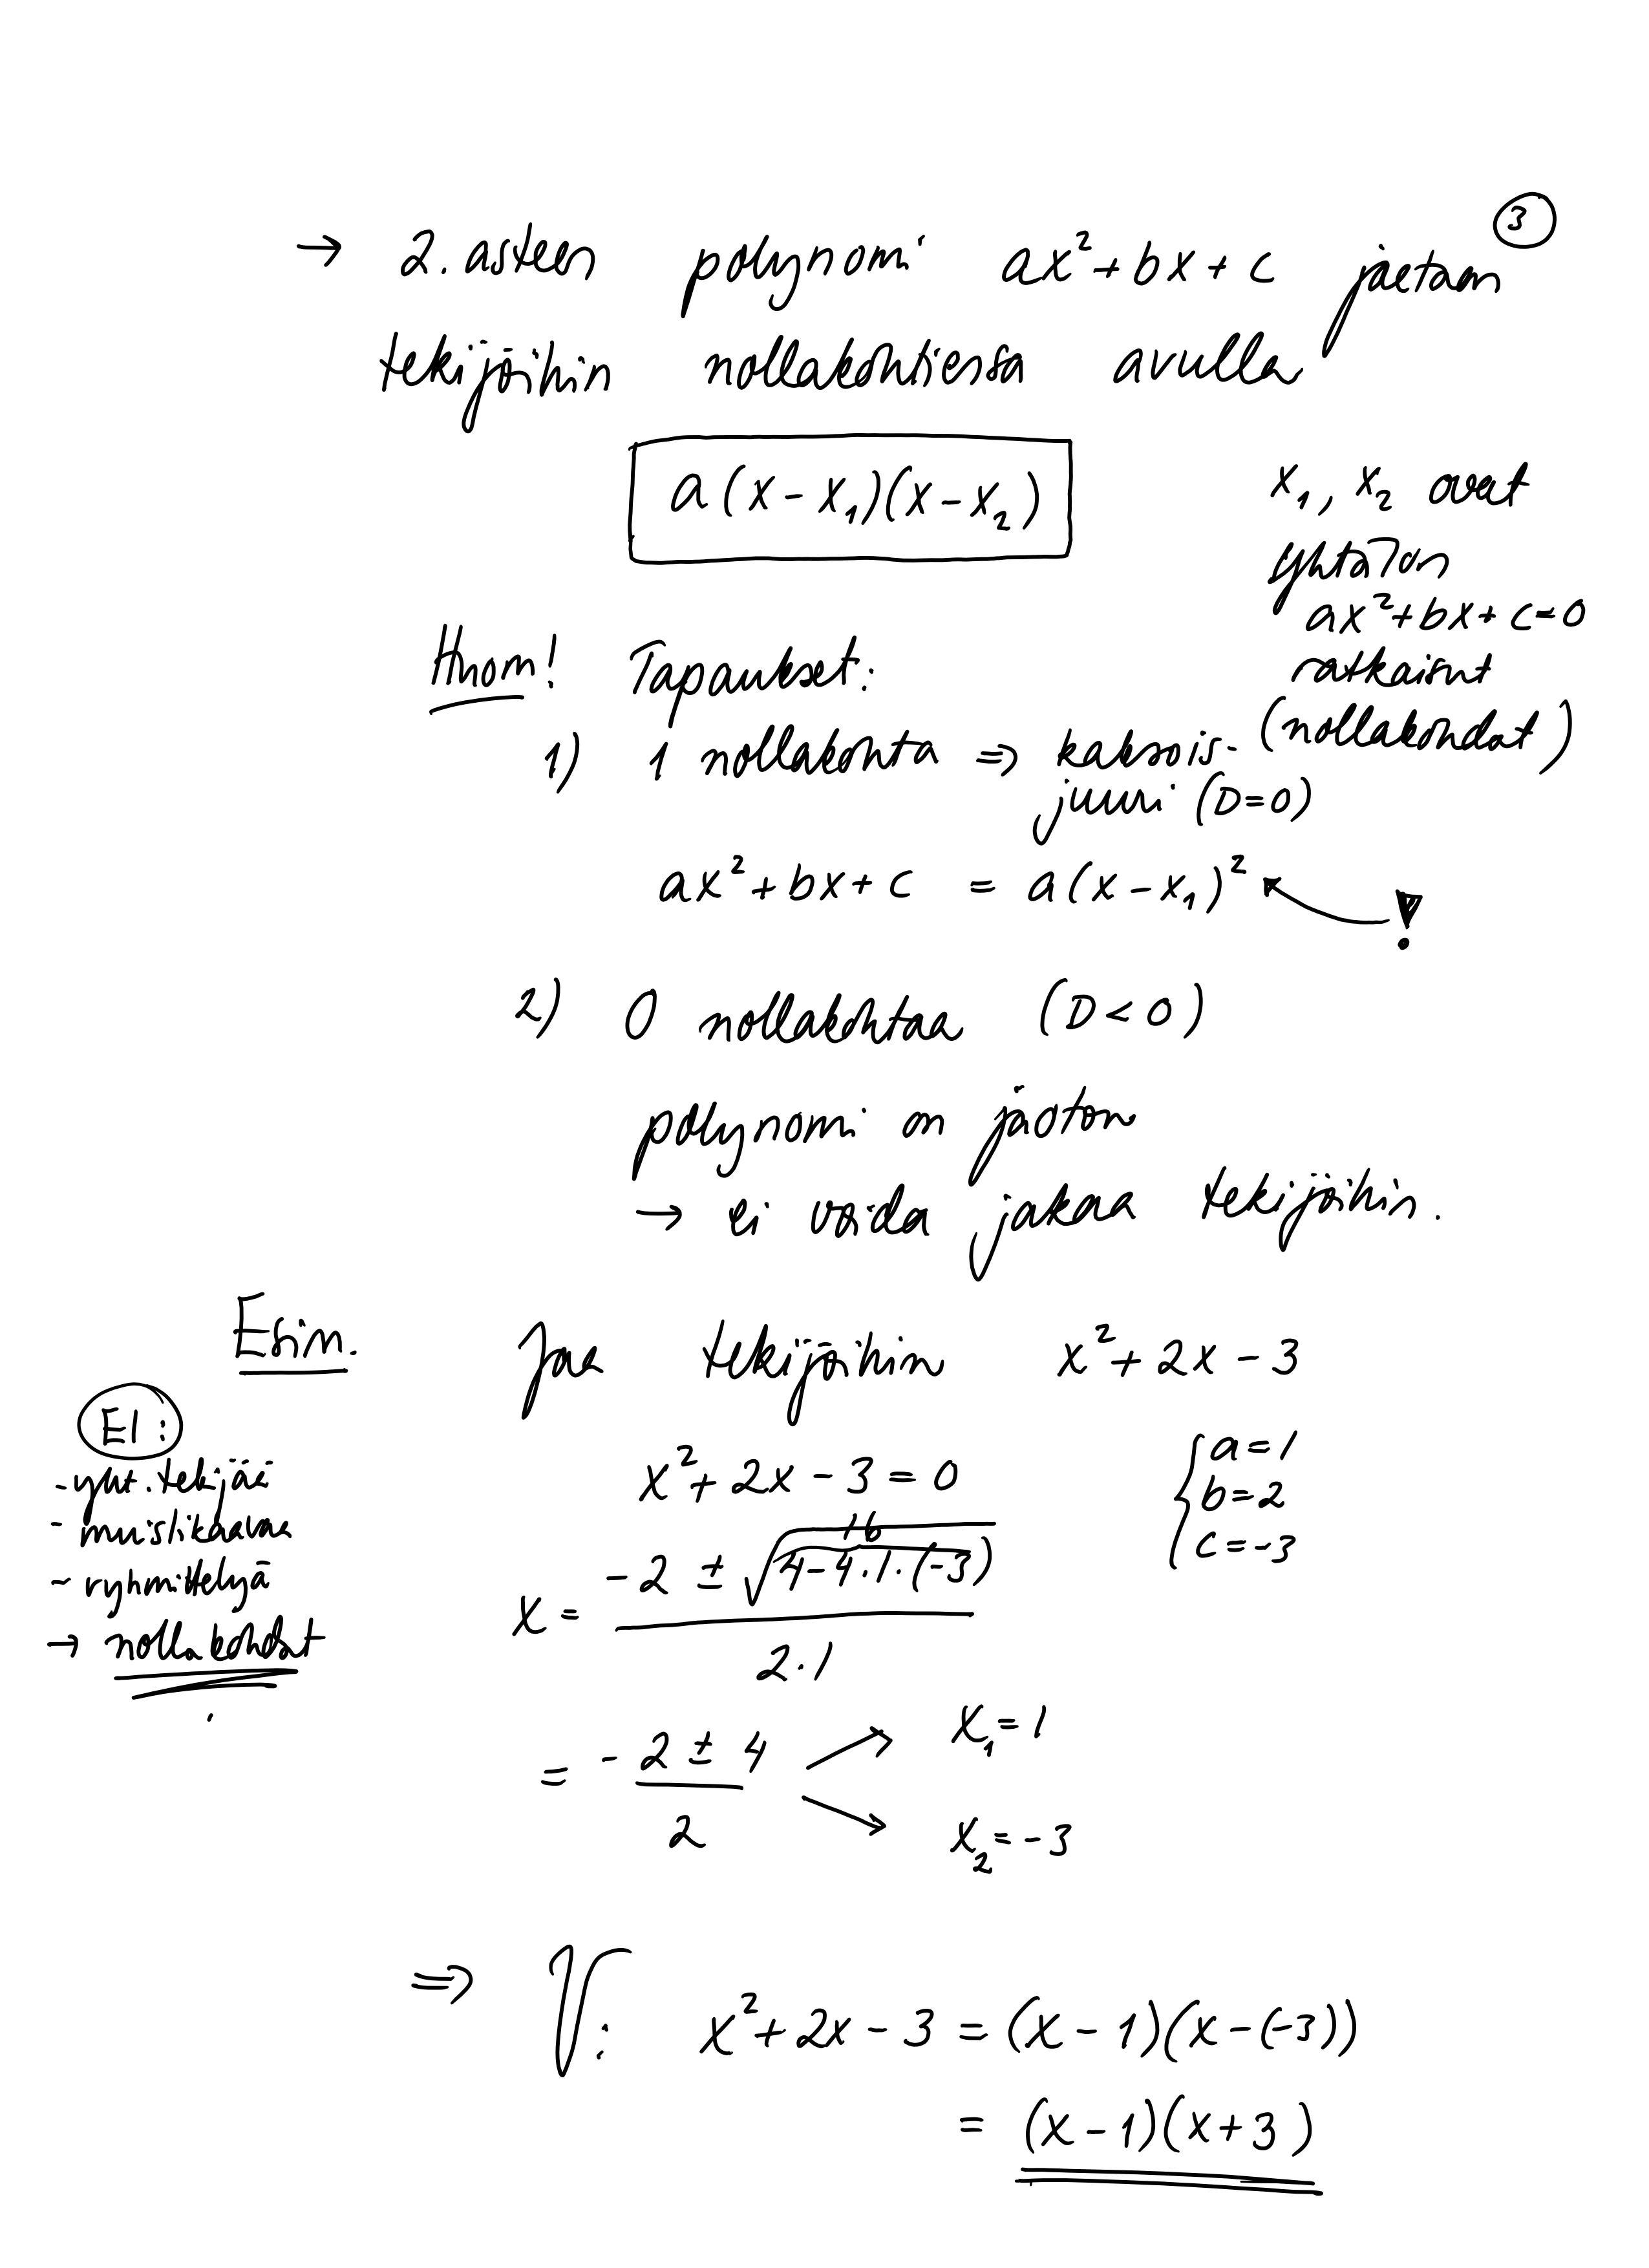 ③
→ 2. asteen polynomi ax²+bx+c jaetaan
tekijöihin nollakohtiensa avulla
a(x-x₁)(x-x₂)
x₁, x₂ ovat
yhtälön
ax²+bx+c=0
ratkaisut
(nollakohdat)
Huom! Tapaukset:
1) 1 nollakohta ⇒ kaksois-
juuri (D=0)
ax²+bx+c = a(x-x₁)²
!
2) 0 nollakohtaa (D<0)
polynomi on jaoton
→ ei voida jakaa tekijöihin.
Esim. Jaa tekijöihin x²+2x-3
EI:
- yht. tekijää
- muistikaavaa
- ryhmittelyä
→ nollakohdat
x²+2x-3=0
{a=1
b=2
c=-3
16
x = (-2 ± √(4-4·1·(-3)))/(2·1)
= (-2 ± 4)/2
x₁=1
x₂=-3
⇒ V: x²+2x-3 = (x-1)(x-(-3))
= (x-1)(x+3)